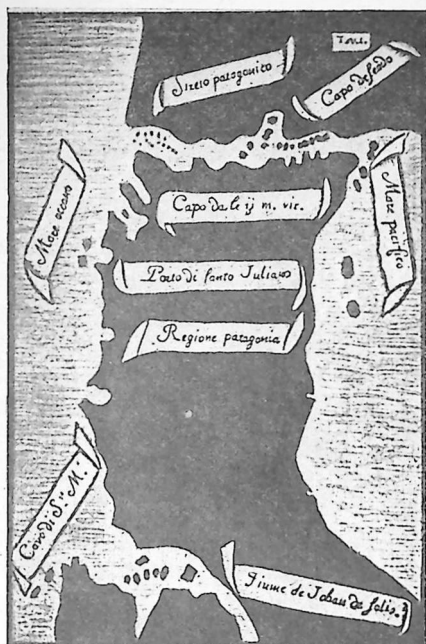 Streto patagonico
Capo deseado
Mare occano
Capo de le ij m. vir.
Mare pacifico
Porto di santo Juliano
Regione patagonia
Capo di S.ᵗᵃ M.ᵃ
Fiume de Johan de solis.